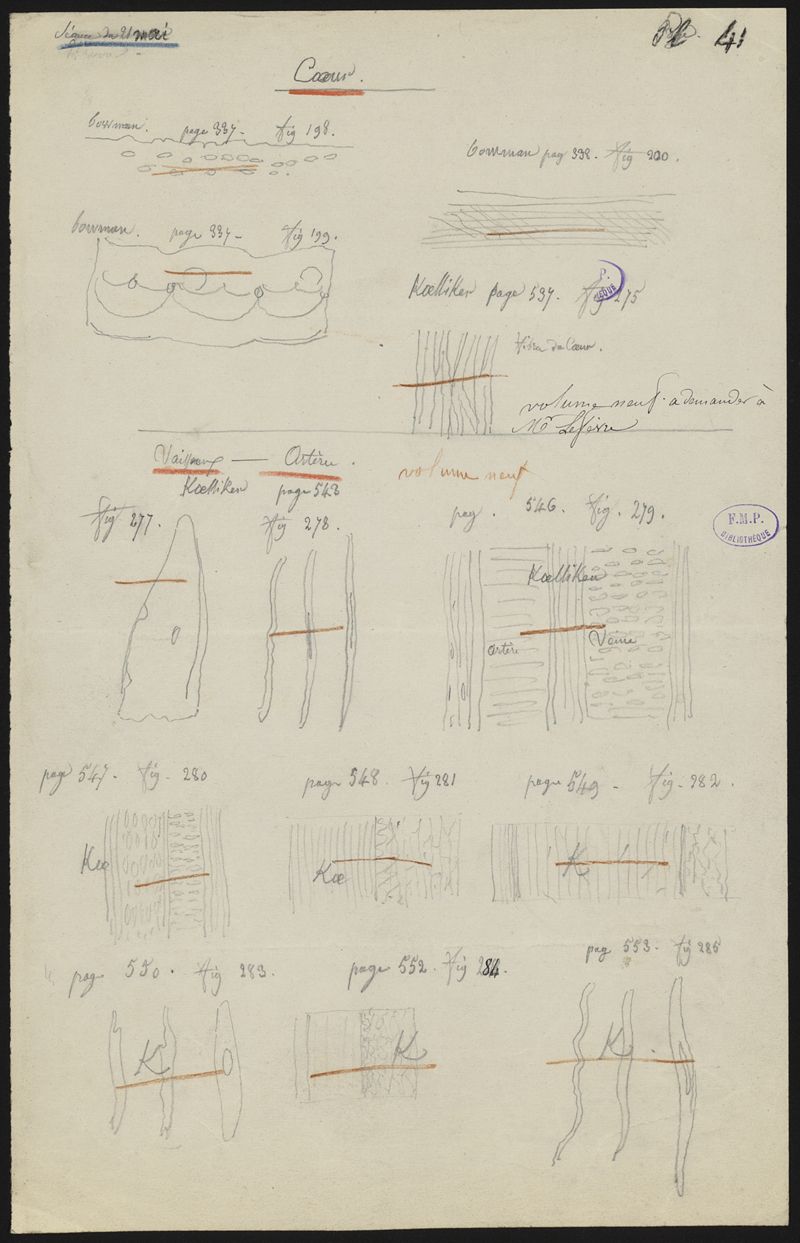 Séance du 21 mai
Pl. 41
Cœur.
bowman. page 337- fig 198.
bowman pag 338. fig 200.
bowman. page 337- fig 199.
Kœlliker page 537. fig 275
fibre du Cœur.
volume neuf. a demander à
Mr Lefèvre
Vaisseaux — Artère.
volume neuf
Kœlliker page 543
fig 277. fig 278.
pag. 546. fig. 279.
Kœlliker
artère
Veine
F.M.P.
BIBLIOTHÈQUE
page 547. fig. 280
page 548. fig 281
page 549 - fig. 282.
Kœ
Kœ
K
page 550. fig 283.
page 552. fig 284.
pag 553. fig 285
K
K
K